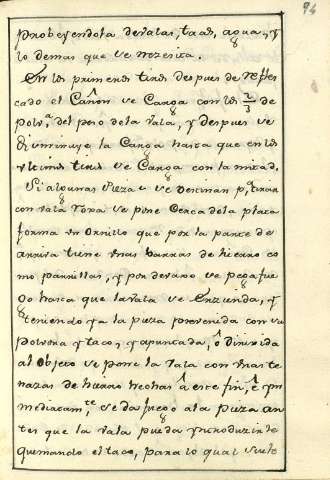 94
probeyendola de valas, tacos, agua, y
lo demas que se nezesita.
En los primeros tiros despues de refres
cado el Cañon se Carga con los 2/3 de
polv.a del peso de la vala, y despues se
disminuye la Carga hasta que en los
ultimos tiros se Carga con la mitad.
Si algunas Piezas se destinan p.a tirar
con vala Roxa se pone Cerca de la plata
forma un Ornillo que por la parte de
arriva tiene unas barras de hierro co
mo parrillas, y por devaxo se pega fue
go hasta que la vala se Enzienda, y
teniendo ya la pieza prevenida con su
polvora y taco, y apuntada, ô dirixida
al Objeto se pone la vala con unas te
nazas de hierro hechas â este fin, ê yn
mediatam.te se da fuego a la pieza an
tes que la vala pueda yntroduzirse
quemando el taco, para lo qual suele